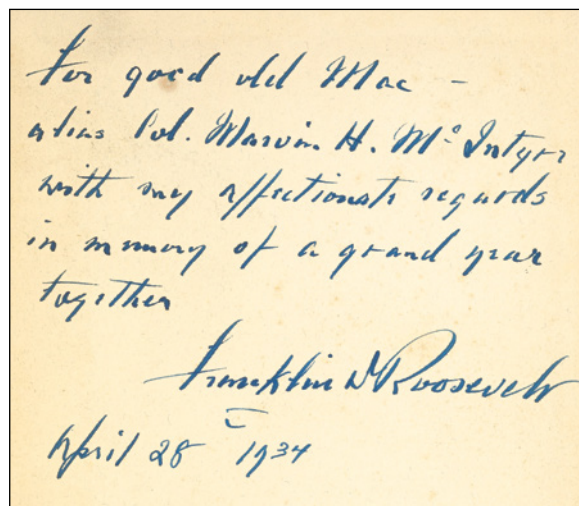 For good old Mac –
alias Col. Marvin H. McIntyre
with my affectionate regards
in memory of a grand year
together
Franklin D Roosevelt
April 28 1934